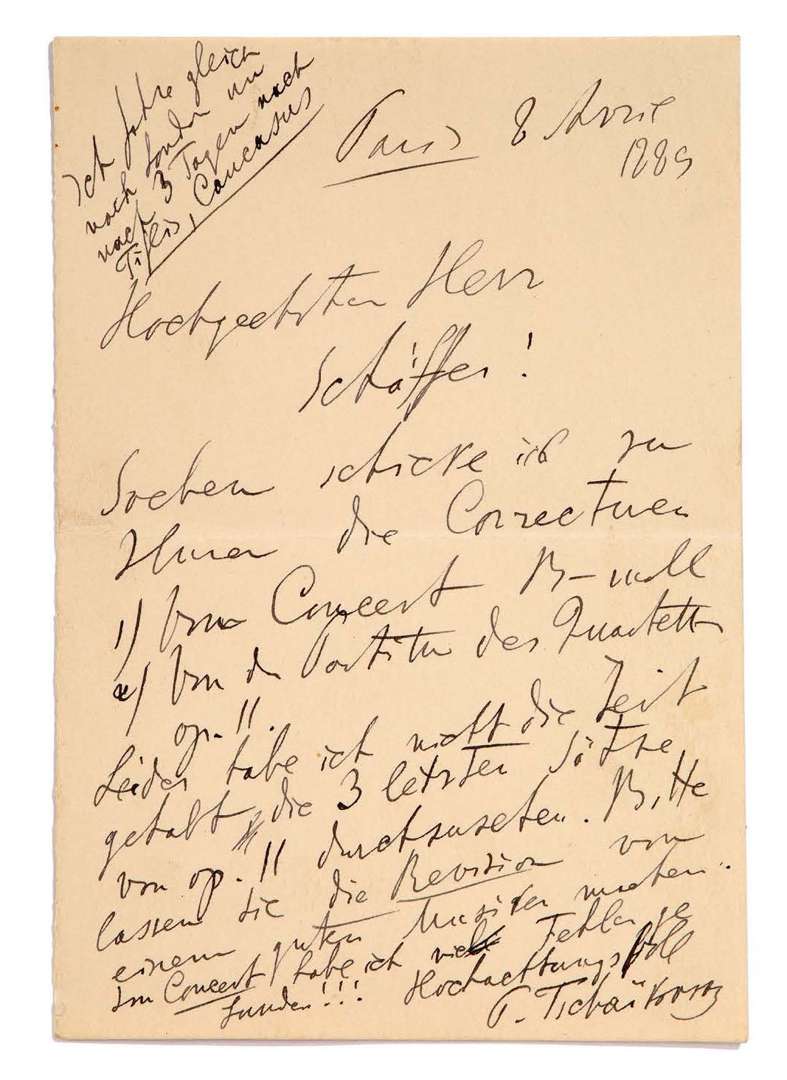 Ich fahre gleich
nach London und
nach 3 Tagen nach
Tiflis, Caucasus
Paris 8 Avril
1889
Hochgeehrten Herr
Schäffer!
Soeben schicke ich zu
Ihnen die Correcturen
1) Vom Concert B-moll
2) Von der Partitur des Quartetts
op. 11.
Leider habe ich nicht die Zeit
gehabt, die 3 letzten Sätze
von op. 11 durchzusehen. Bitte
lassen Sie die Revision von
einem guten Musiker machen.
Im Concert habe ich viel Fehler ge
funden!!! Hochachtungsvoll
P. Tschaïkovsky